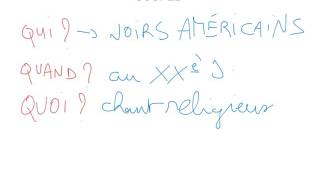 QUI? → NOIRS AMÉRICAINS
QUAND? au XXè s
QUOI? chant religieux